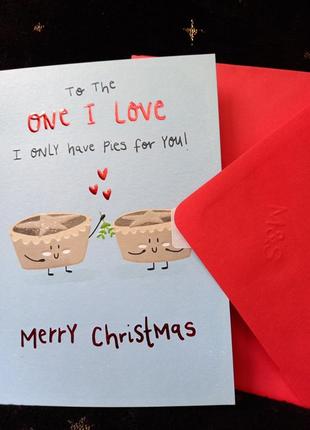 To The
ONE I LOVE
I ONLY have PIES for YOU!
Merry Christmas
M&S